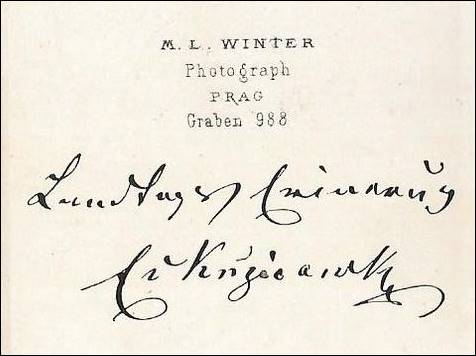 M. L. WINTER
Photograph
PRAG
Graben 988
Landtags Erinerug